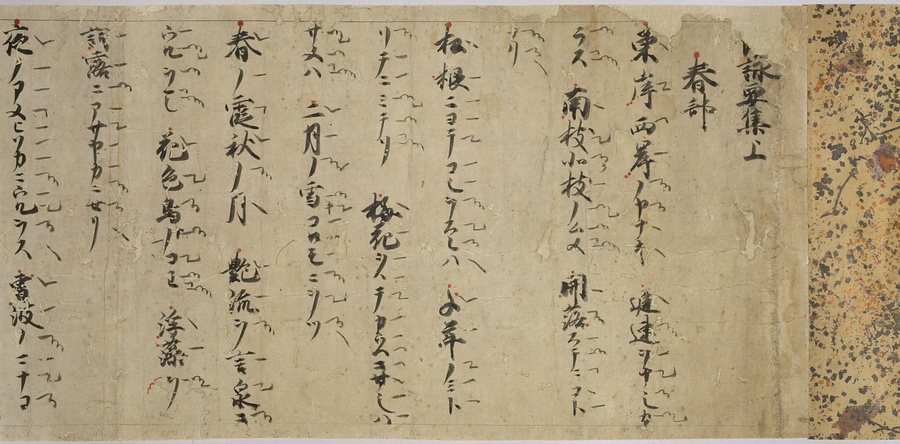 詠要集上
春部
東岸西岸ノヤナキ 遅速ヲナシカ
ラス 南枝北枝ノムメ 開落ステニコト
ナリ
松根ニヨテコシヲスレハ 千年ノミト
リテニミテリ 梅花ヲヲテカウヘニサシハ
サメハ 二月ノ雪コロモニヲツ
春ノ庭秋ノ月 艶流ヲ言泉ニ
ウルヲシ 花色鳥ノコヱ 浮藻ヲ
詞露ニアサヤカニセリ
夜ノアメヒソカニウルヲス 曽波ノ